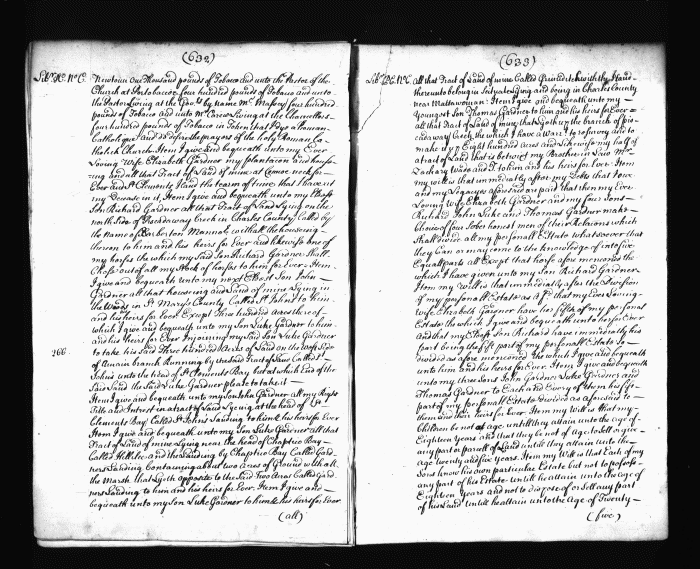 (632)
Newtown One thousand pounds of Tobaco and unto the Pastor of the
Church at Portobacco four hundred pounds of Tobaco and unto
the Pastor Living at the Gov.rs by name Mr Massey four hundred
pounds of Tobaco and unto Mr Carew Living at the Chancellors
four hundred pounds of Tobaco in Token that I dye a Roman
Catholique And I desire the prayers of the holy Roman Ca
tholick Church Item I give and bequeath unto my Ever
Loving Wife Elizabeth Gardner my plantation and housing
and all that Tract of Land of mine at Canoe neck for
Ever and St Clements Island the tearm of time that I have in it
my Decease in it Item I give and bequeath unto my Eldest
Son Richard Gardner all that Tract of Land Lying on the
north Side of Piscadaway Creek in Charles County Called by
the name of Barberton Mannor with all the housing
thereon to him and his heirs for Ever and likewise One of
my horses the which my Said Son Richard Gardner Shall
Choose out of all my Stock of horses to him for Ever Item
I give and bequeath unto my next Eldest Son John
Gardner all that housing and Land of mine Lying in
the Woods in St Marys County Called St Johns to him
and his heirs for Ever Except three hundred Acres thereof
which I give and bequeath unto my Son Luke Gardner to him
and his heirs for Ever Injoyning my Said Son Luke Gardner
to take his Said three hundred Acres of Land on the West Side
266. of A main branch Running by the Said Tract of Land Called St
Johns unto the head of St Clements Bay but at which End of the
Said Land the Said Luke Gardner please to take it
Item I give and bequeath unto my Son John Gardner all my Right
Title and Interest in A tract of Land Lying at the head of St
Clements Bay Called St Johns Landing to him & his heirs for Ever
Item I give and bequeath unto my Son Luke Gardner all that
Tract of Land of mine Lying near the head of Chaptico Bay
Called Hillilee and the Landing by Chaptico Bay Called Gard
ners Landing Containing about two Acres of Ground with all
the Marsh that Lyeth opposite to the Said Two Acres Called Gard
ners Landing to him and his heirs for Ever Item I give and
bequeath unto my Son Luke Gardner to him & his heirs for Ever
(all)
(633)
all that Tract of Land of mine Called Grindith with the Island
thereunto belonging Scituate Lying and being in Charles County
near Mattawoman Item I give and bequeath unto my
Youngest Son Thomas Gardner to him and his heirs for Ever
all that Tract of Land of mine that Lyeth up the branch of pis
cadaway Creek the which I have a Warr.t to resurvey and to
make it up Eight hundred Acres and Likewise my half of
a tract of Land that is betwixt my Brother in Law Mr
Zachary Wade and I to him and his heirs for Ever Item
my will is that immediatly after my Debts that I owe
and my Legacyes aforesaid are paid that then my Ever
Loving wife Elizabeth Gardner and my four Sons
Richard John Luke and Thomas Gardner make
choice of four Sober honest men of their Relaions which
Shall divide all my personall Estate whatsoever that
they Can or may come to the knowledge of into five
Equall parts all Except that horse afore menconed the
which I have given unto my Son Richard Gardner
Item my Will is that immediatly after the Division
of my personall Estate as afsd that my Ever Loving
wife Elizabeth Gardner have her fifth of my personal
Estate the which I give and bequeath unto her for Ever
And that my Eldest Son Richard have immediatly his
part being the fift part of my personall Estate so
divided as afore menconed the which I give and bequeath
unto him and his heirs for Ever Item I give and bequeath
unto my three Sons John Gardner Luke Gardner and
Thomas Gardner to Each and Every of them his fift
part of my personall Estate divided as aforesaid to
them and their heirs for Ever Item my will is that my
Children be not of age untill they attain unto the age of
Eighteen Years and that they be not of Age to Sell or give
any part or parcell of Land untill they attain unto the
age twenty and five Years Item my Will is that Each of my
Sons know his own particular Estate but not to possess
any part of his Estate untill he attain unto the age of
Eighteen Years and not to dispose of or Sell any part
of his Land untill he attain unto the Age of Twenty
(five)